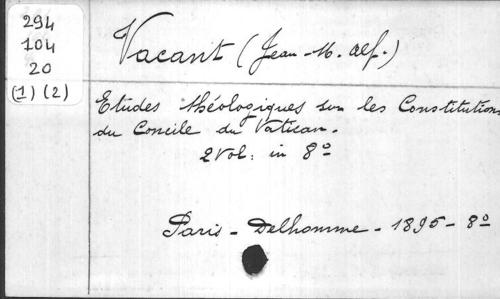 294
104
20
(1) (2)
Vacant (Jean-M. Alf.)
Etudes théologiques sur les Constitutions
du Concile du Vatican.
2 Vol: in 8º
Paris - Delhomme - 1895 - 8º